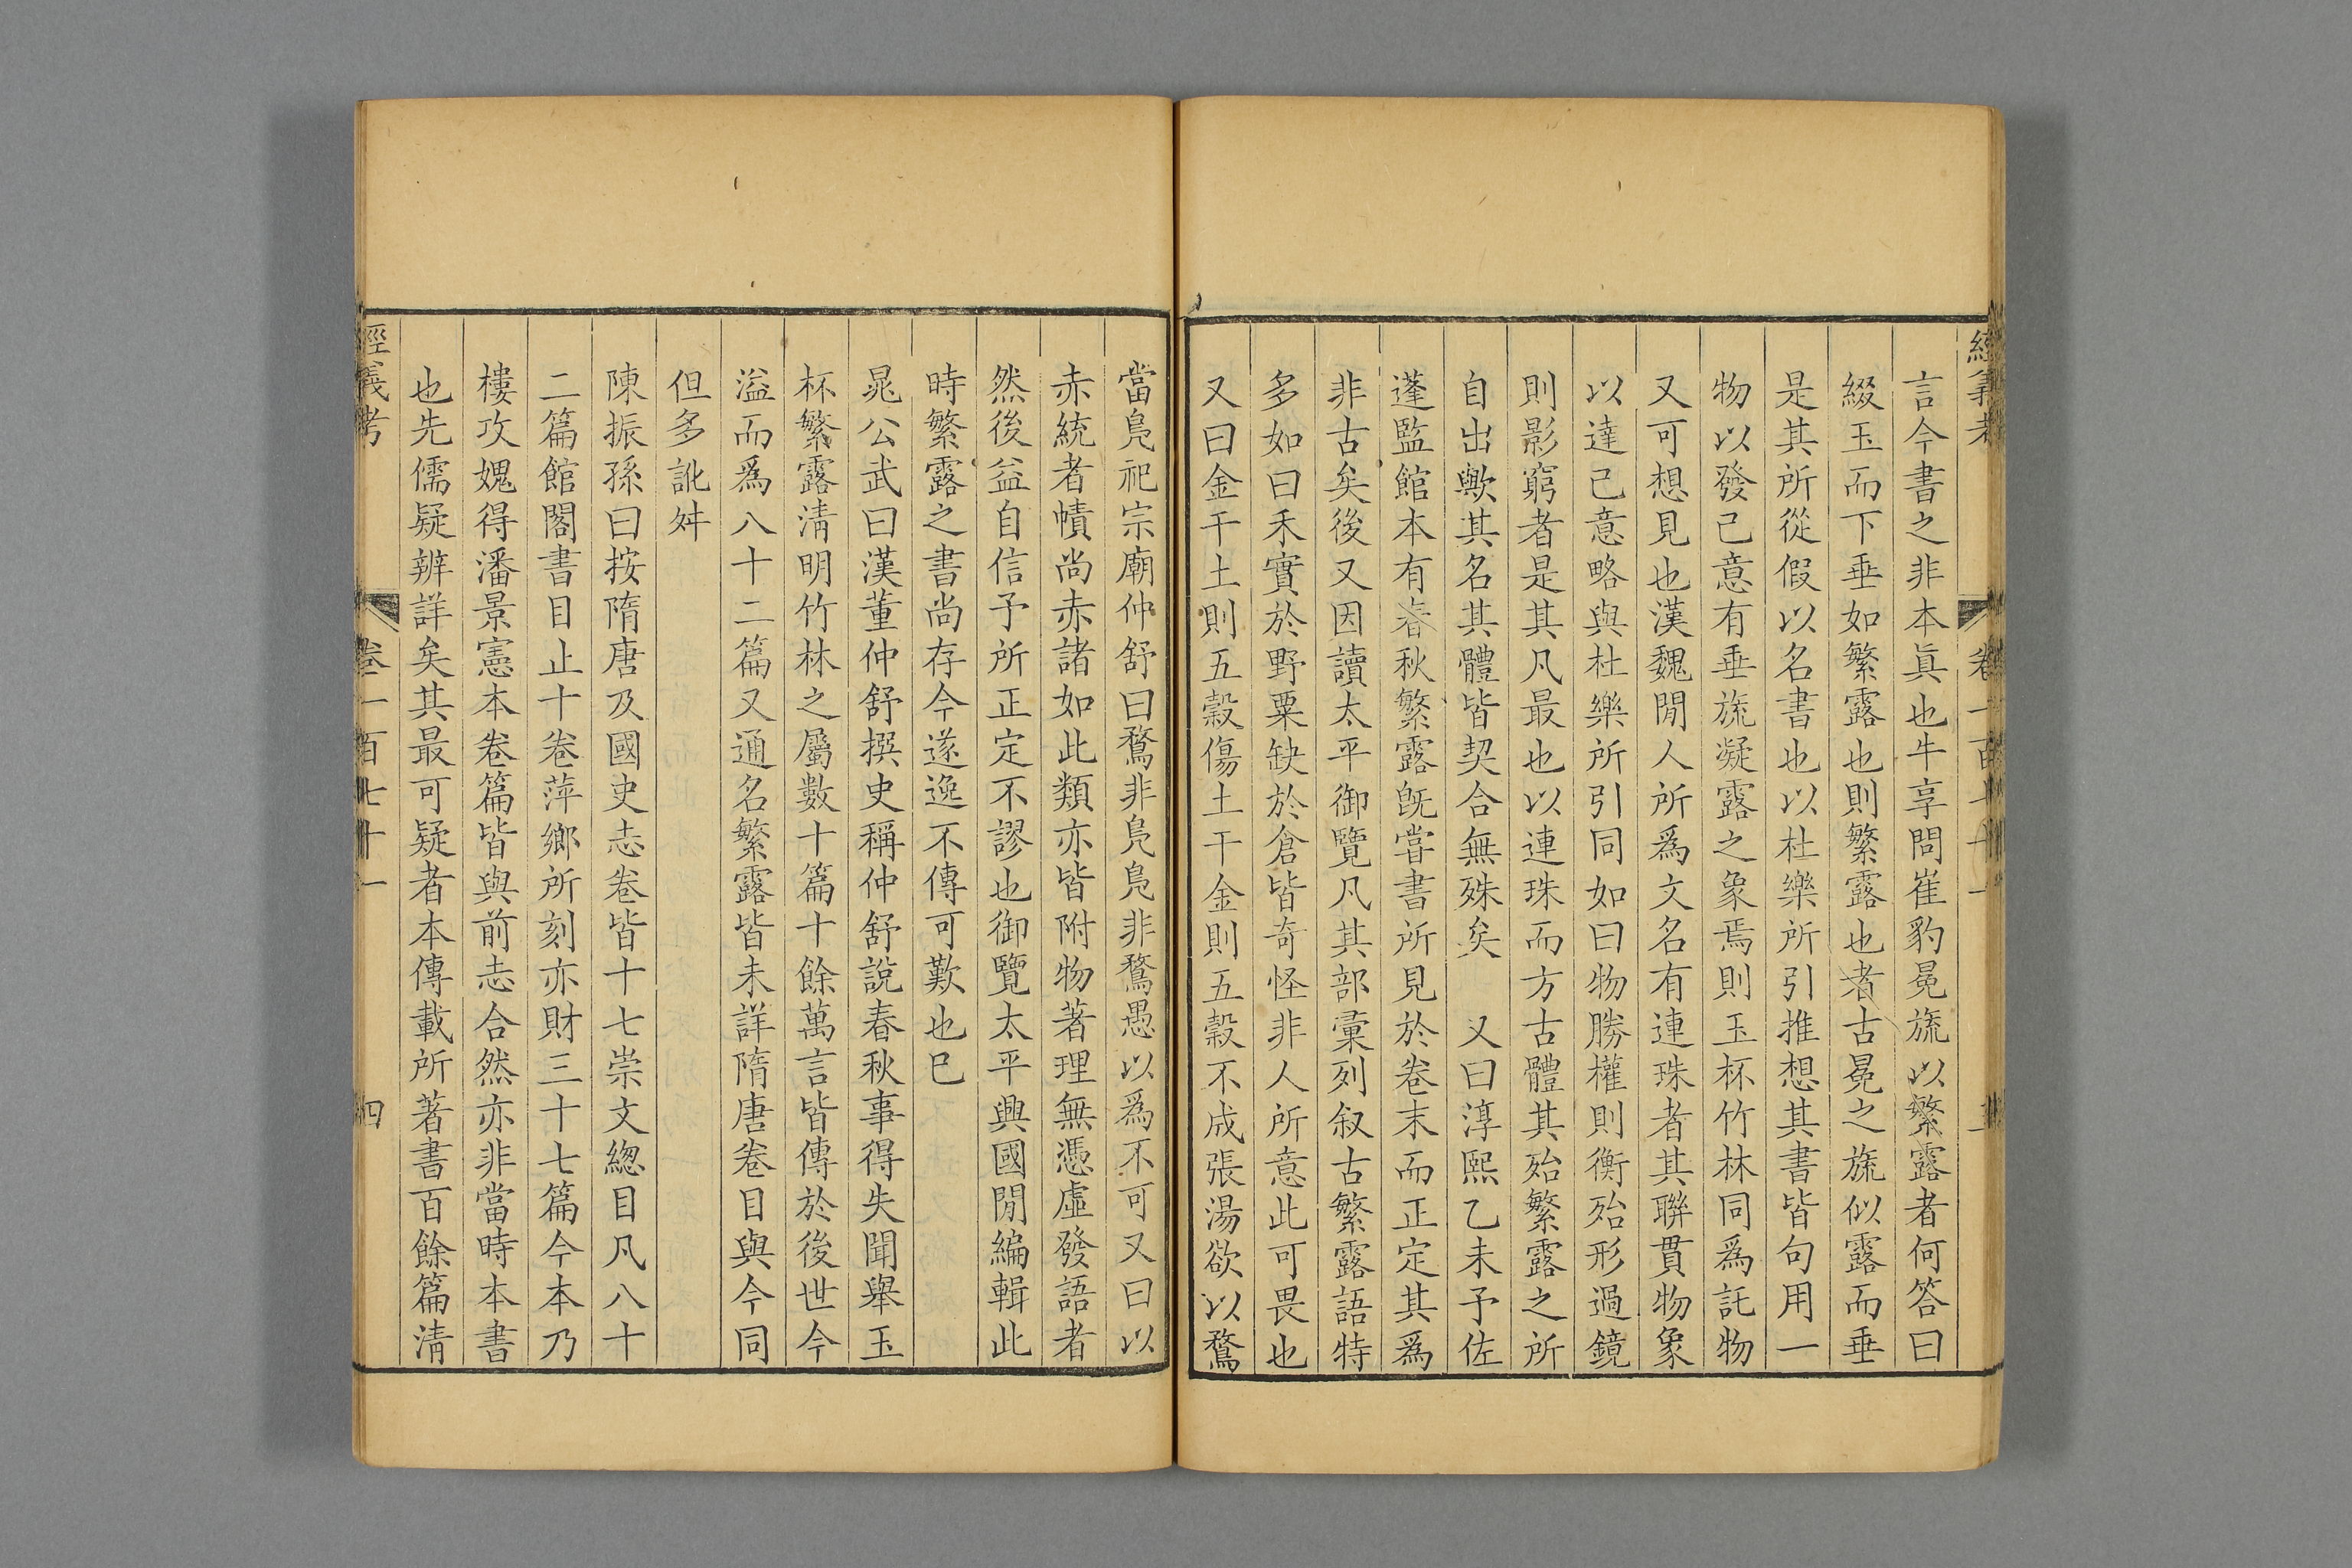 經義考 卷一百七十一 三
言今書之非本眞也牛享問崔豹冕旒以繁露者何答曰
綴玉而下垂如繁露也則繁露也者古冕之旒似露而垂
是其所從假以名書也以杜樂所引推想其書皆句用一
物以發己意有垂旒凝露之象焉則玉杯竹林同爲託物
又可想見也漢魏閒人所爲文名有連珠者其聯貫物象
以達己意略與杜樂所引同如曰物勝權則衡殆形過鏡
則影窮者是其凡最也以連珠而方古體其殆繁露之所
自出歟其名其體皆契合無殊矣 又曰淳熙乙未予佐
蓬監館本有春秋繁露旣嘗書所見於卷末而正定其爲
非古矣後又因讀太平御覽凡其部彙列叙古繁露語特
多如曰禾實於野粟缺於倉皆奇怪非人所意此可畏也
又曰金干土則五穀傷土干金則五穀不成張湯欲以鶩
當鳧祀宗廟仲舒曰鶩非鳧鳧非鶩愚以爲不可又曰以
赤統者幘尚赤諸如此類亦皆附物著理無憑虛發語者
然後益自信予所正定不謬也御覽太平興國閒編輯此
時繁露之書尚存今遂逸不傳可歎也巳
晁公武曰漢董仲舒撰史稱仲舒說春秋事得失聞舉玉
杯繁露淸明竹林之屬數十篇十餘萬言皆傳於後世今
溢而爲八十二篇又通名繁露皆未詳隋唐卷目與今同
但多訛舛
陳振孫曰按隋唐及國史志卷皆十七崇文緫目凡八十
二篇館閣書目止十卷萍鄉所刻亦財三十七篇今本乃
樓攻媿得潘景憲本卷篇皆與前志合然亦非當時本書
也先儒疑辨詳矣其最可疑者本傳載所著書百餘篇淸
經義考 卷一百七十一 四